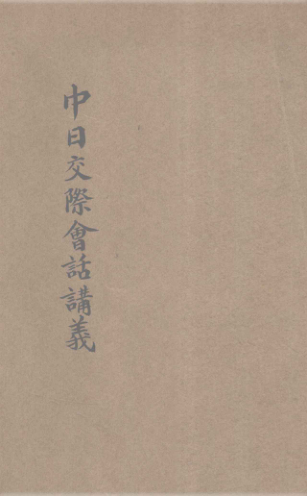 中日交際會話講義